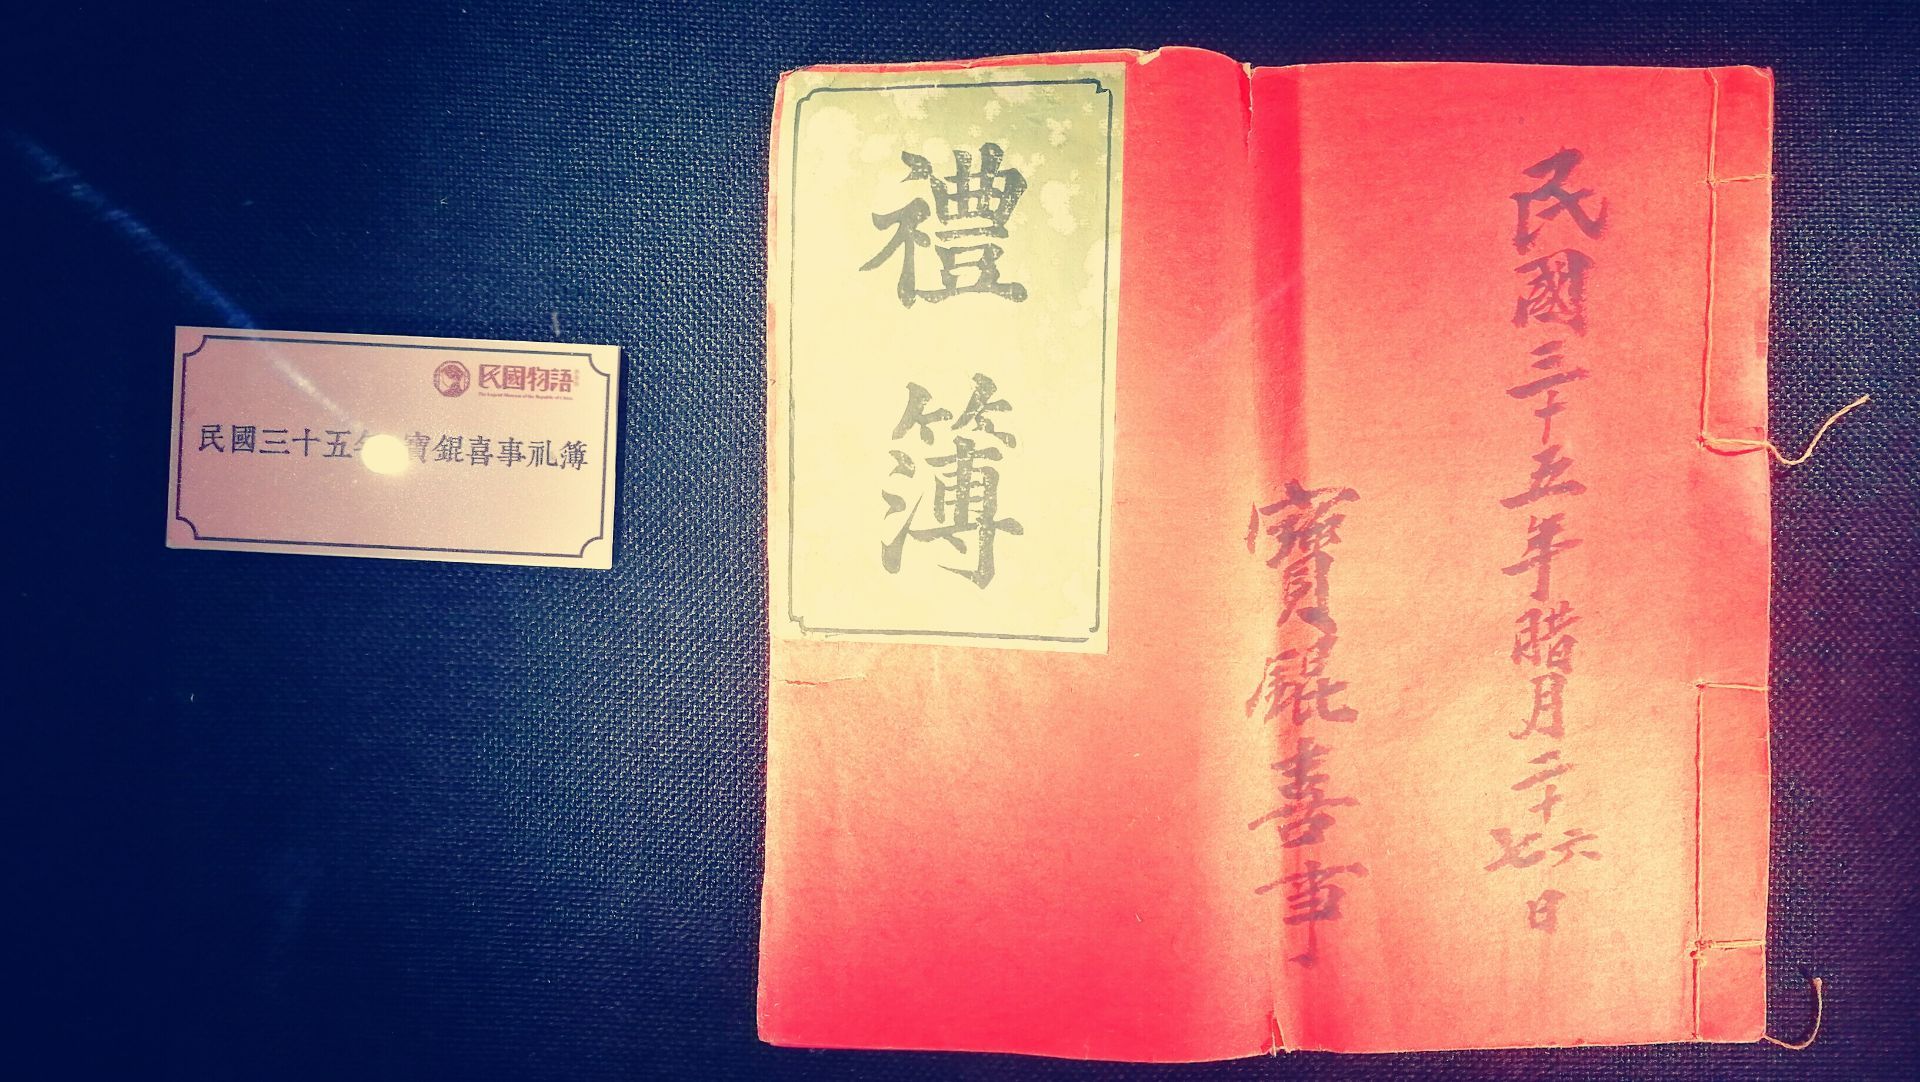 民國物語
The Legend Museum of the Republic of China
民國三十五年 寶錕喜事礼簿
禮簿
民國三十五年腊月二十六七日
寶錕喜事